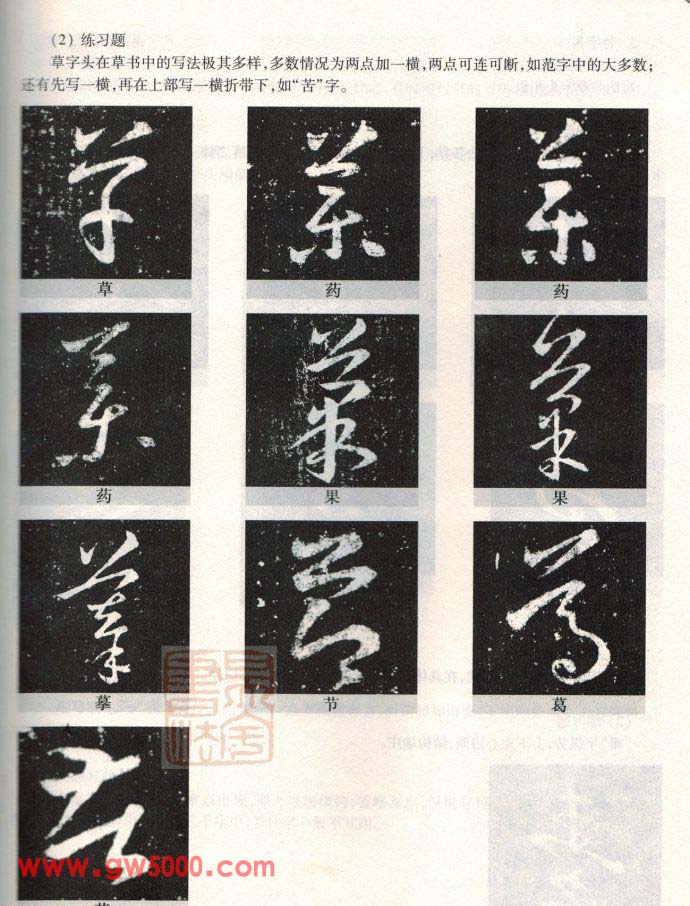 (2) 练习题
草字头在草书中的写法极其多样,多数情况为两点加一横,两点可连可断,如范字中的大多数;
还有先写一横,再在上部写一横折带下,如“苦”字。
草 药 药
药 果 果
摹 节 葛
www.gw5000.com